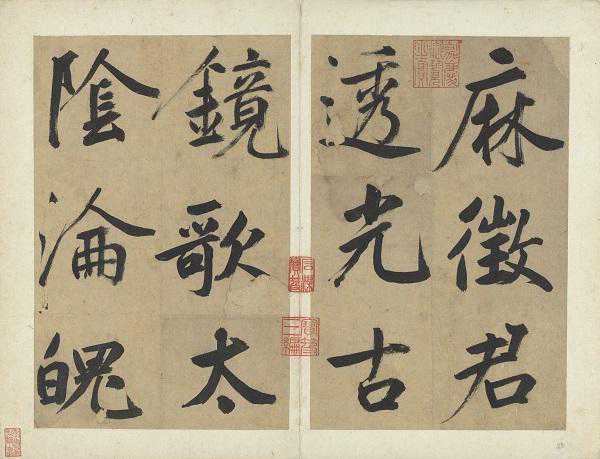 麻徵君
透光古
鏡歌太
陰淪魄